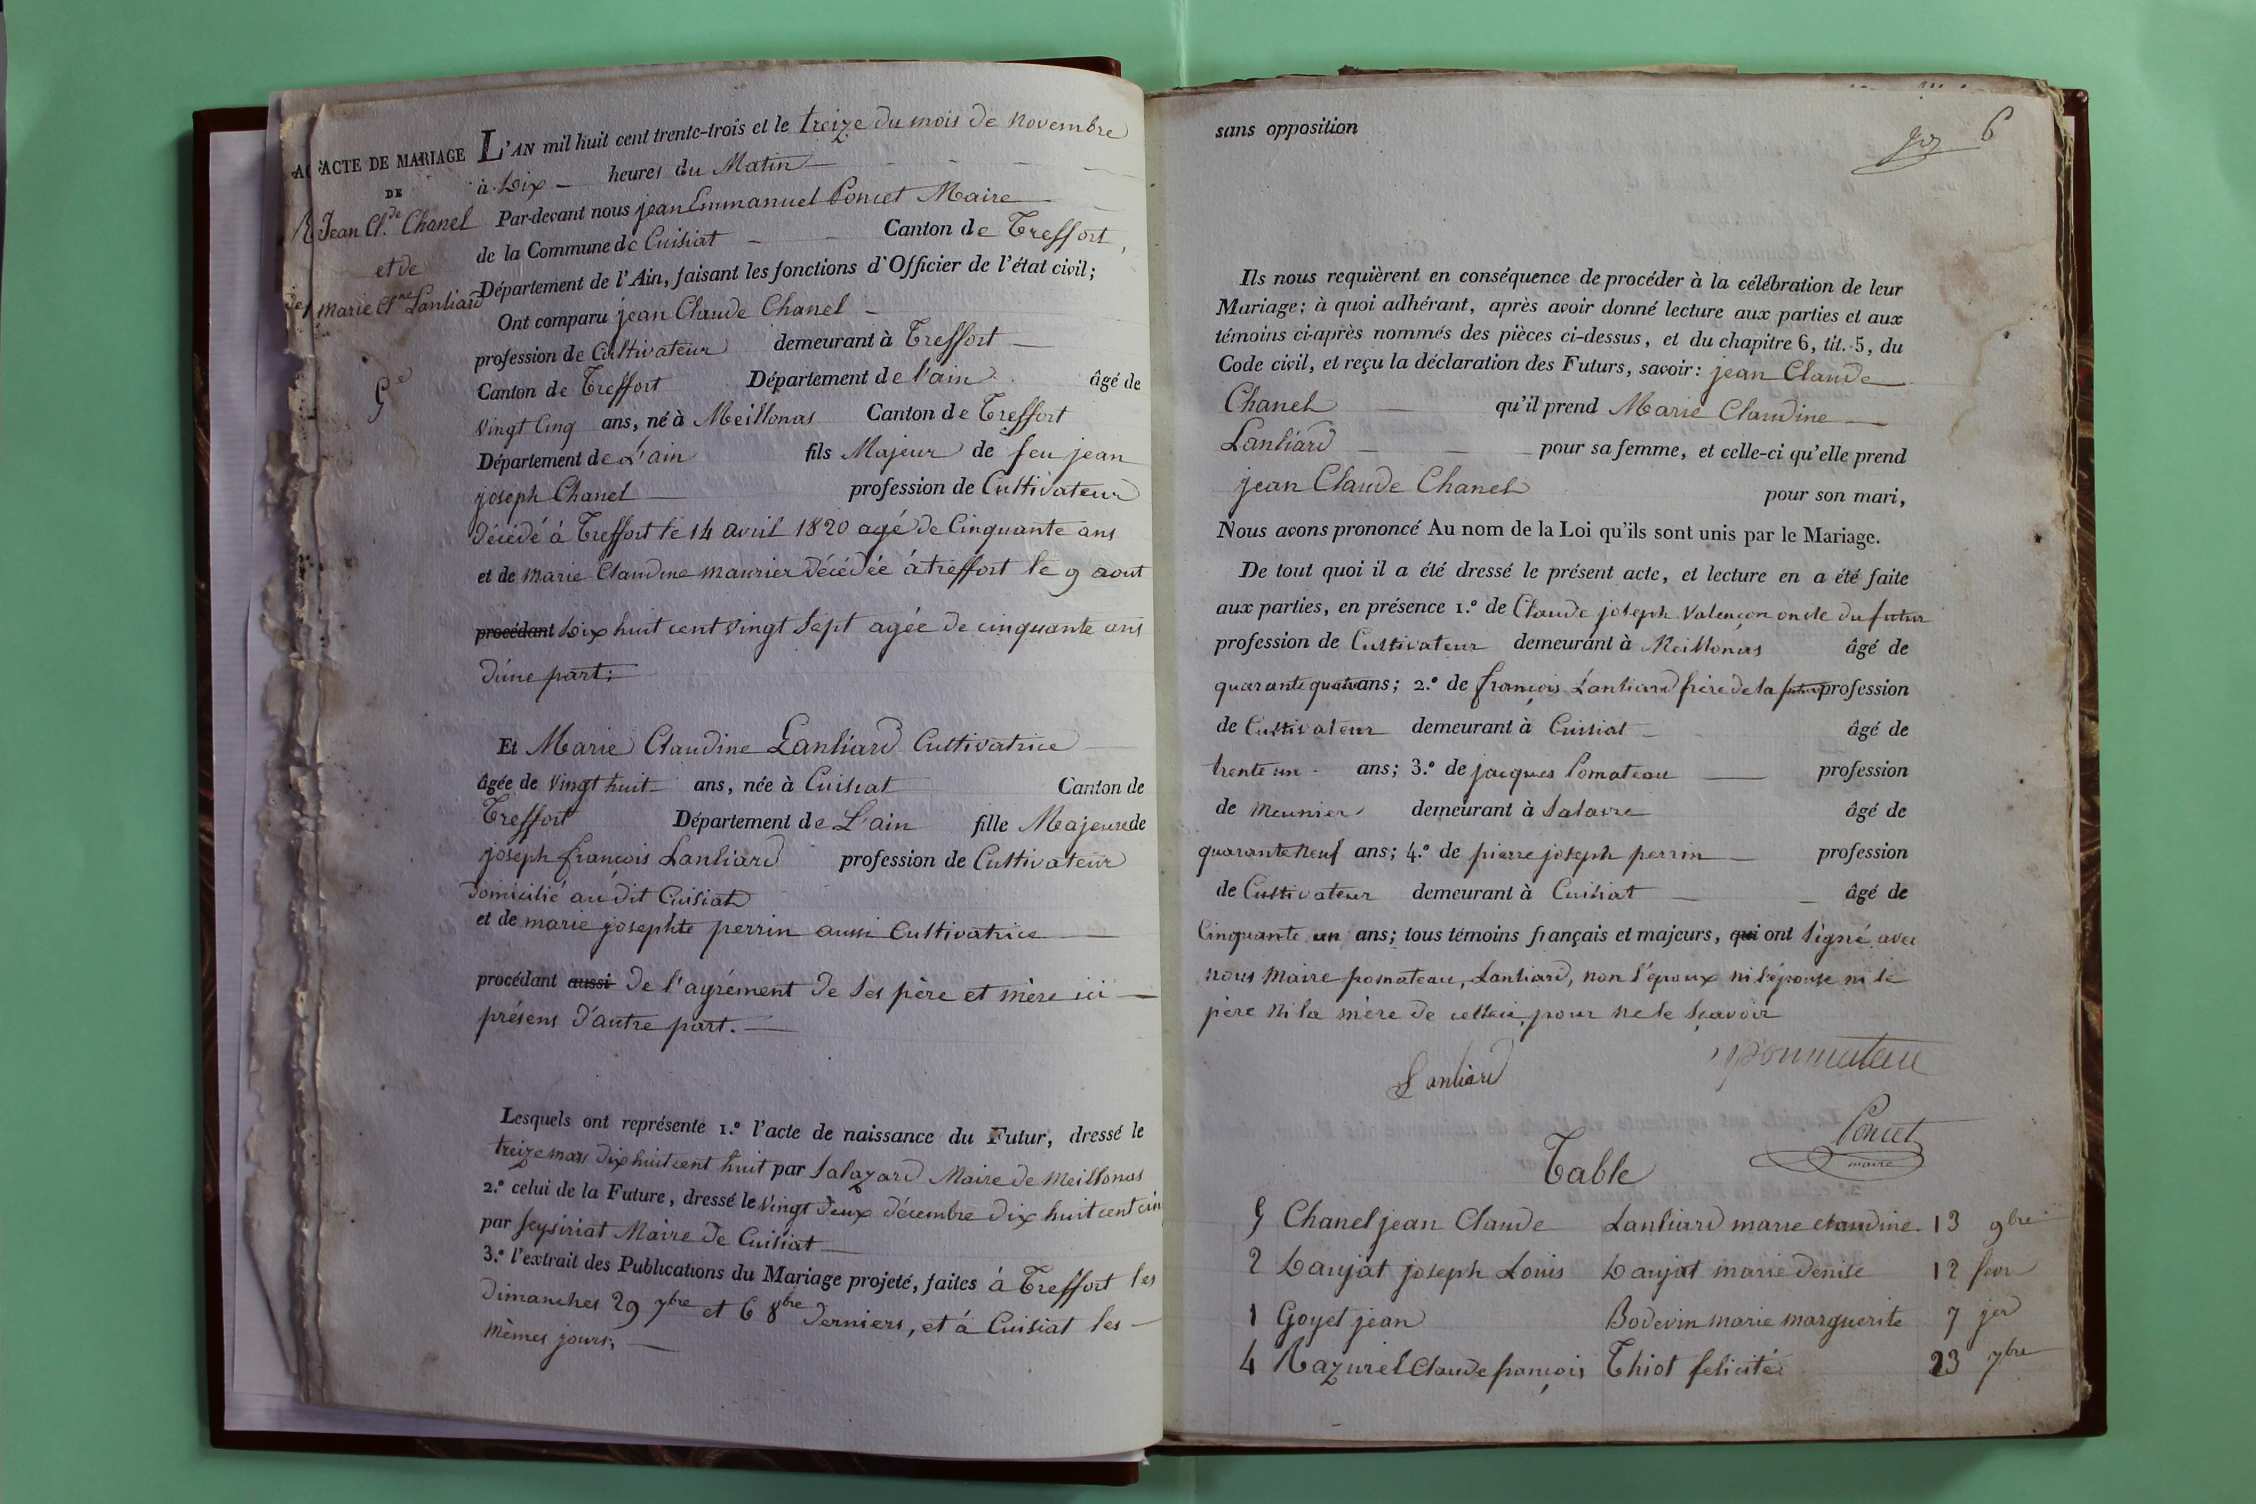 ACTE DE MARIAGE
DE
Jean Cl.de Chanel
et de
Marie Cl.ne Lanliard
5e
L'AN mil huit cent trente-trois et le treize du mois de novembre
à Dix heures du Matin
Par-devant nous jean Emmanuel Poncet Maire
de la Commune de Cuisiat Canton de Treffort,
Département de l'Ain, faisant les fonctions d'Officier de l'état civil;
Ont comparu jean Claude Chanel
profession de Cultivateur demeurant à Treffort
Canton de Treffort Département de l'ain âgé de
vingt Cinq ans, né à Meillonas Canton de Treffort
Département de L'ain fils Majeur de feu jean
joseph Chanel profession de Cultivateur
décédé à Treffort le 14 avril 1820 agé de Cinquante ans
et de marie Claudine maurier décédée à treffort le 9 aout
procédant Dix huit cent vingt Sept agée de cinquante ans
d'une part;
Et Marie Claudine Lanliard Cultivatrice
âgée de vingt huit ans, née à Cuisiat Canton de
Treffort Département de L'ain fille Majeure de
joseph françois Lanliard profession de Cultivateur
domicilié au dit Cuisiat
et de marie josephte perrin aussi Cultivatrice
procédant aussi de l'agrément de ses père et mère ici
présens d'autre part.
Lesquels ont représenté 1.º l'acte de naissance du Futur, dressé le
treize mars dix huit cent huit par Salazard Maire de Meillonas
2.º celui de la Future, dressé le vingt deux décembre dix huit cent cin
par seysiriat Maire de Cuisiat
3.º l'extrait des Publications du Mariage projeté, faites à Treffort les
dimanches 29 7bre et 6 8bre derniers, et à Cuisiat les
mêmes jours;
sans opposition
6
Ils nous requièrent en conséquence de procéder à la célébration de leur
Mariage; à quoi adhérant, après avoir donné lecture aux parties et aux
témoins ci-après nommés des pièces ci-dessus, et du chapitre 6, tit. 5, du
Code civil, et reçu la déclaration des Futurs, savoir: jean Claude
Chanel qu'il prend Marie Claudine
Lanliard pour sa femme, et celle-ci qu'elle prend
jean Claude Chanel pour son mari,
Nous avons prononcé Au nom de la Loi qu'ils sont unis par le Mariage.
De tout quoi il a été dressé le présent acte, et lecture en a été faite
aux parties, en présence 1.º de Claude joseph Valençon oncle du futur
profession de Cultivateur demeurant à Meillonas âgé de
quarante quatre ans; 2.º de françois Lanliard frère de la future profession
de Cultivateur demeurant à Cuisiat âgé de
trente un ans; 3.º de jacques Pomateau profession
de Meunier demeurant à Salavre âgé de
quarante neuf ans; 4.º de pierre joseph perrin profession
de Cultivateur demeurant à Cuisiat âgé de
Cinquante un ans; tous témoins français et majeurs, qui ont signé avec
nous Maire pomateau, Lanliard, non l'époux ni l'épouse ni le
père ni la mère de celleci, pour ne le sçavoir
Lanliard
pommateau
Poncet
maire
Table
5 Chanel jean Claude Lanliard marie claudine 13 9bre
2 Danjat joseph Louis Danjat marie denise 12 fevr
1 Goyet jean Bodevin marie marguerite 7 jer
4 Razurel Claude françois Thiot felicité 23 7bre